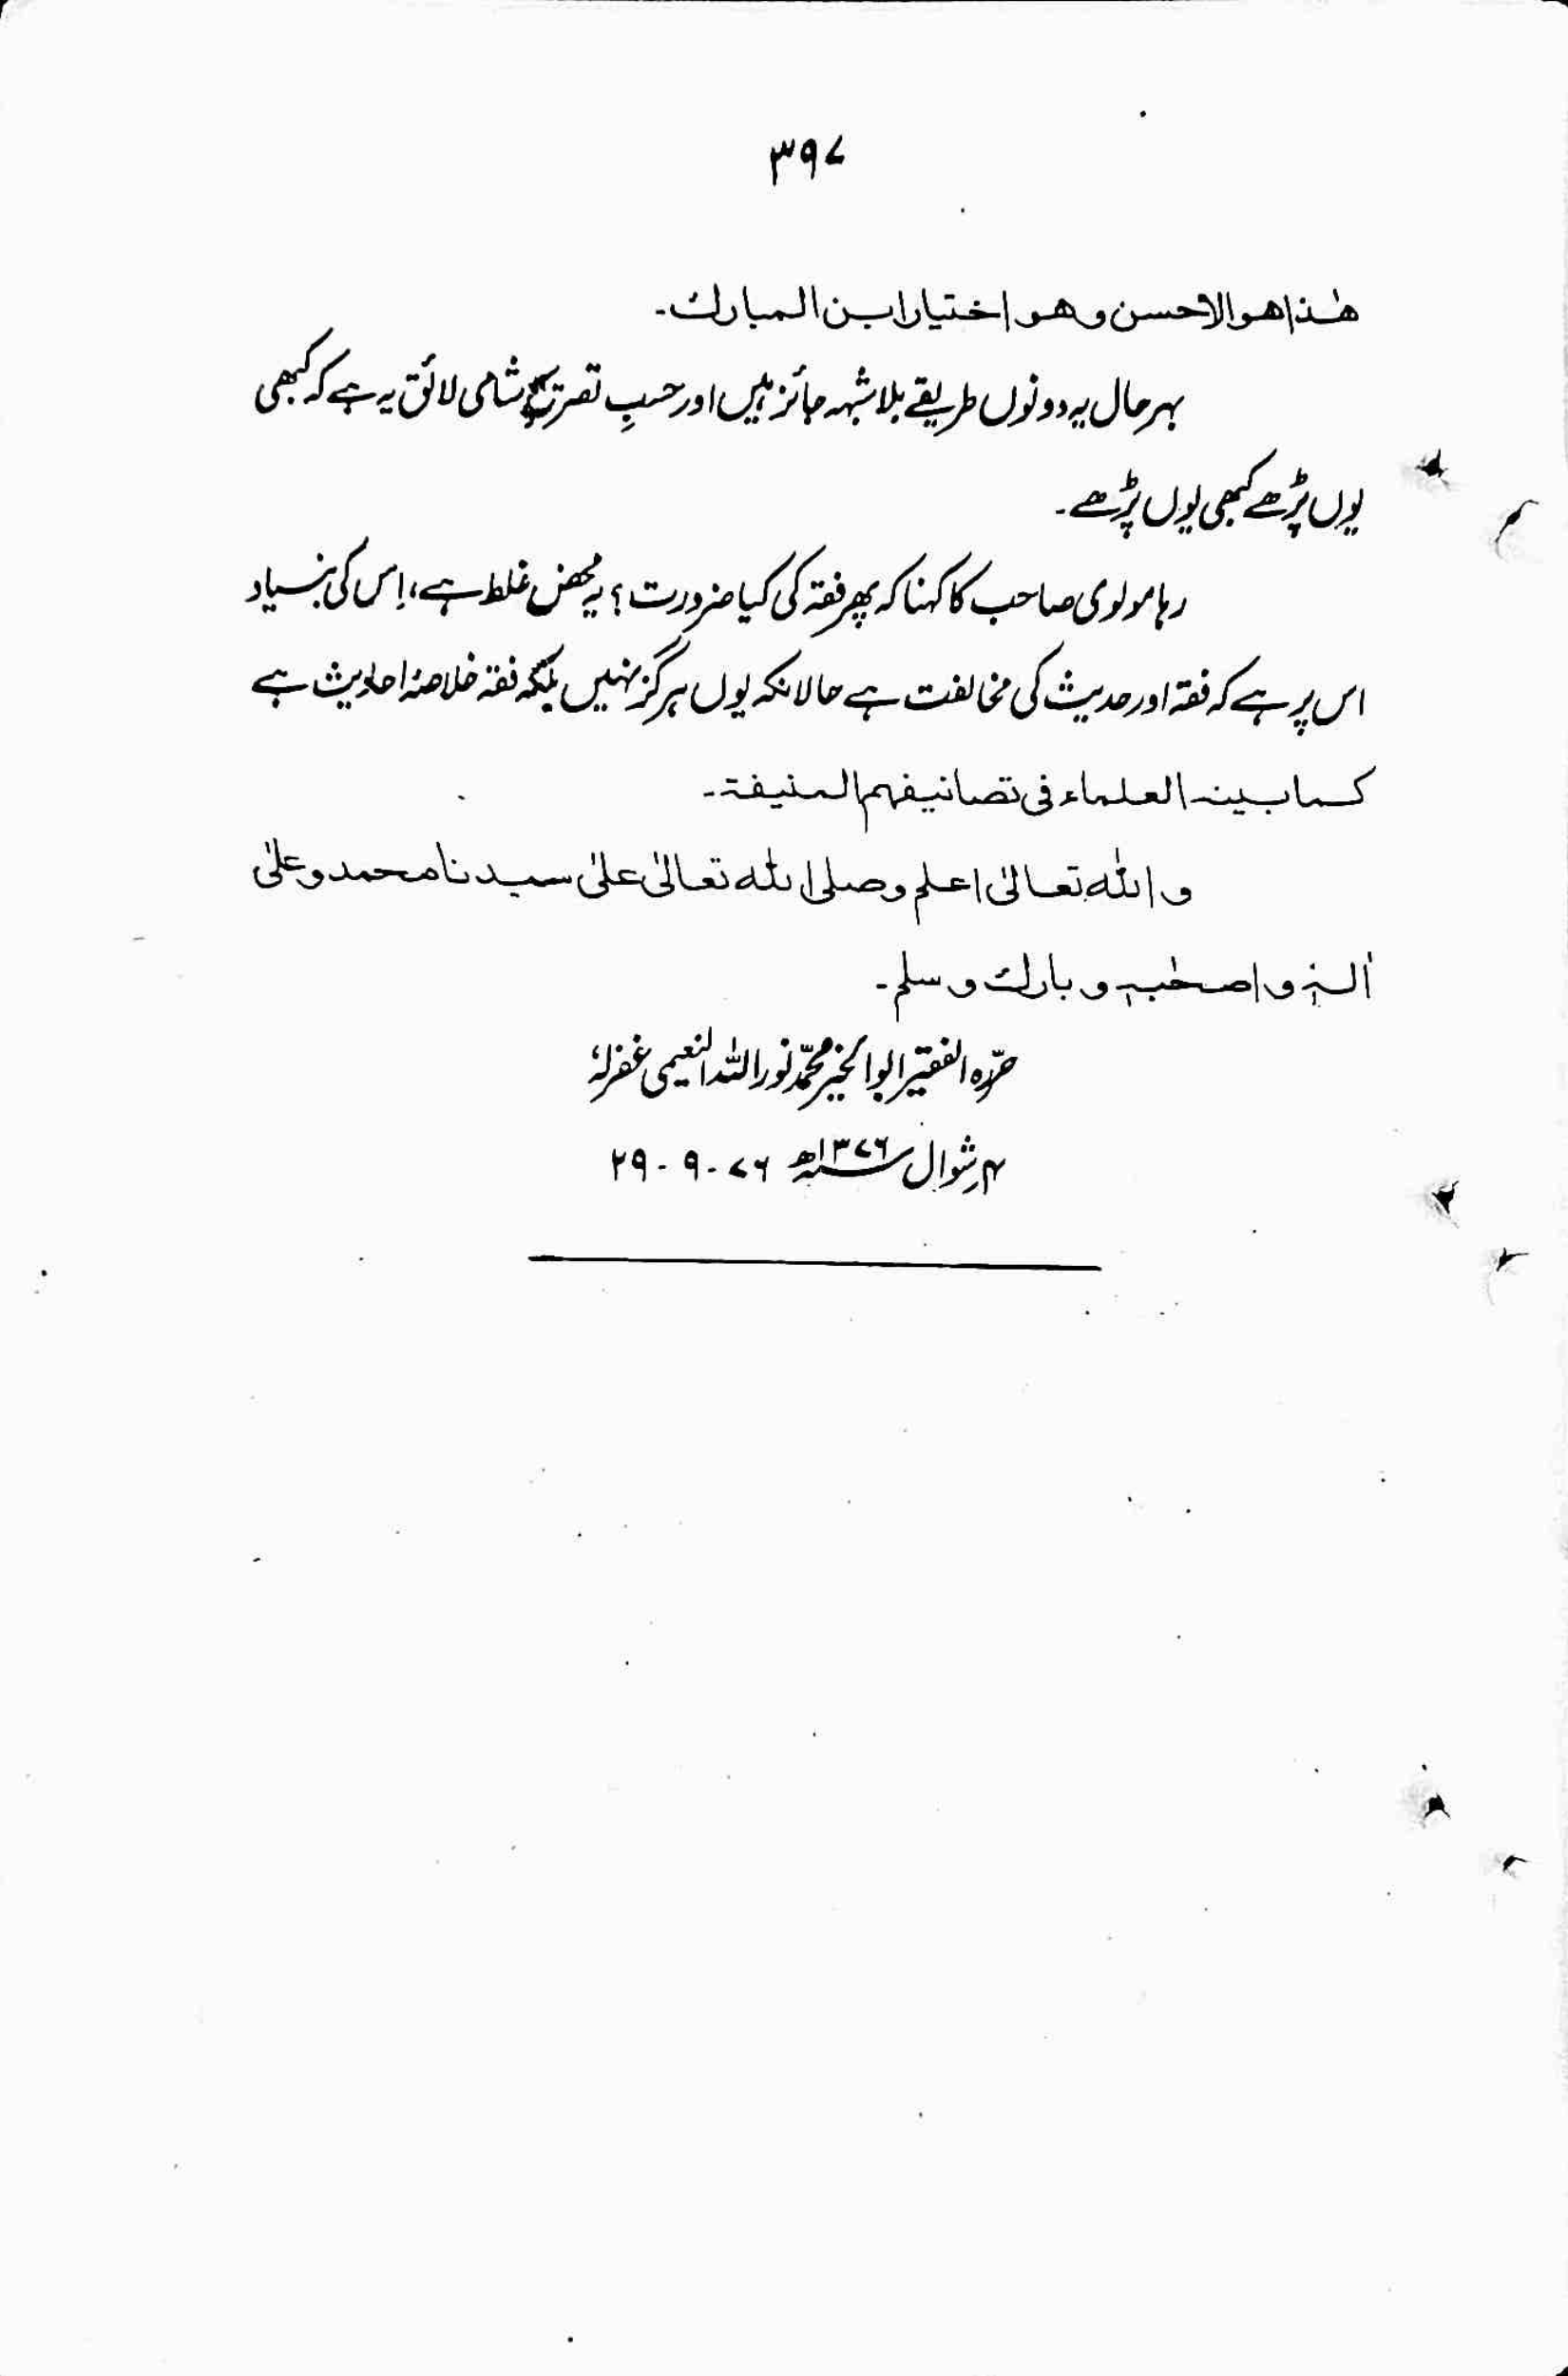 ۳۹۷
ھٰذا ھو الاحسن و ھو اختیار ابن المبارك۔
بہرحال یہ دونوں طریقے بلاشبہہ جائز ہیں اور حسبِ تصریح شامی لائق یہ ہے کہ کبھی
یوں پڑھے کبھی یوں پڑھے۔
رہا مولوی صاحب کا کہنا کہ پھر فقہ کی کیا ضرورت؟ یہ محض غلط ہے، اِس کی بنیاد
اس پر ہے کہ فقہ اور حدیث کی مخالفت ہے حالانکہ یوں ہرگز نہیں بلکہ فقہ خلاصۂ احادیث ہے
کما بینہ العلماء فی تصانیفھم المنیفۃ۔
و اللہ تعالیٰ اعلم و صلی اللہ تعالیٰ علیٰ سیدنا محمد و علیٰ
اٰلہٖ و اصحٰبہٖ و بارك و سلم۔
حرّرہ الفقیر ابوالخیر محمّد نور اللہ النعیمی غفرلہٗ
۴ شوال سنہ ۱۳۷۶ھ ۷۶-۹-۲۹